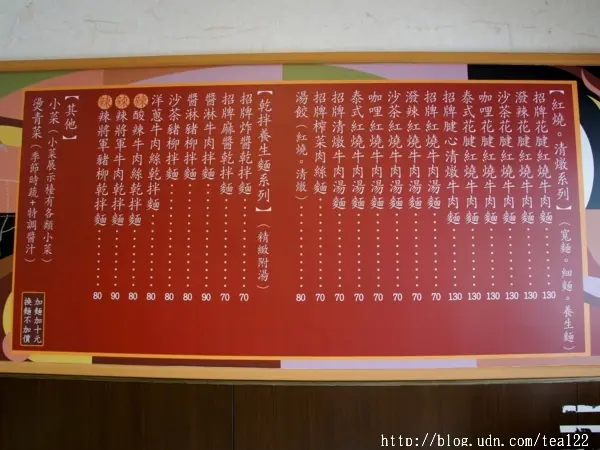 【紅燒。清燉系列】（寬麵。細麵。養生麵）
招牌花腱紅燒牛肉麵 130
潑辣花腱紅燒牛肉麵 130
沙茶花腱紅燒牛肉麵 130
咖哩花腱紅燒牛肉麵 130
泰式花腱紅燒牛肉麵 130
招牌腱心清燉牛肉麵 130
招牌紅燒牛肉湯麵 70
潑辣紅燒牛肉湯麵 70
沙茶紅燒牛肉湯麵 70
咖哩紅燒牛肉湯麵 70
泰式紅燒牛肉湯麵 70
招牌清燉牛肉湯麵 70
招牌榨菜肉絲麵 70
湯餃（紅燒。清燉） 80
【乾拌養生麵系列】（精緻附湯）
招牌炸醬乾拌麵 70
招牌麻醬乾拌麵 70
醬淋牛肉拌麵 90
醬淋豬柳拌麵 80
沙茶豬柳拌麵 80
洋蔥牛肉絲乾拌麵 80
辣 酸辣牛肉絲乾拌麵 80
辣 辣將軍牛肉乾拌麵 90
辣 辣將軍豬柳乾拌麵 80
【其他】
小菜（小菜展示檯有各類小菜）
燙青菜（季節時蔬+特調醬汁）
加麵加十元
換麵不加價
http://blog.udn.com/tea122